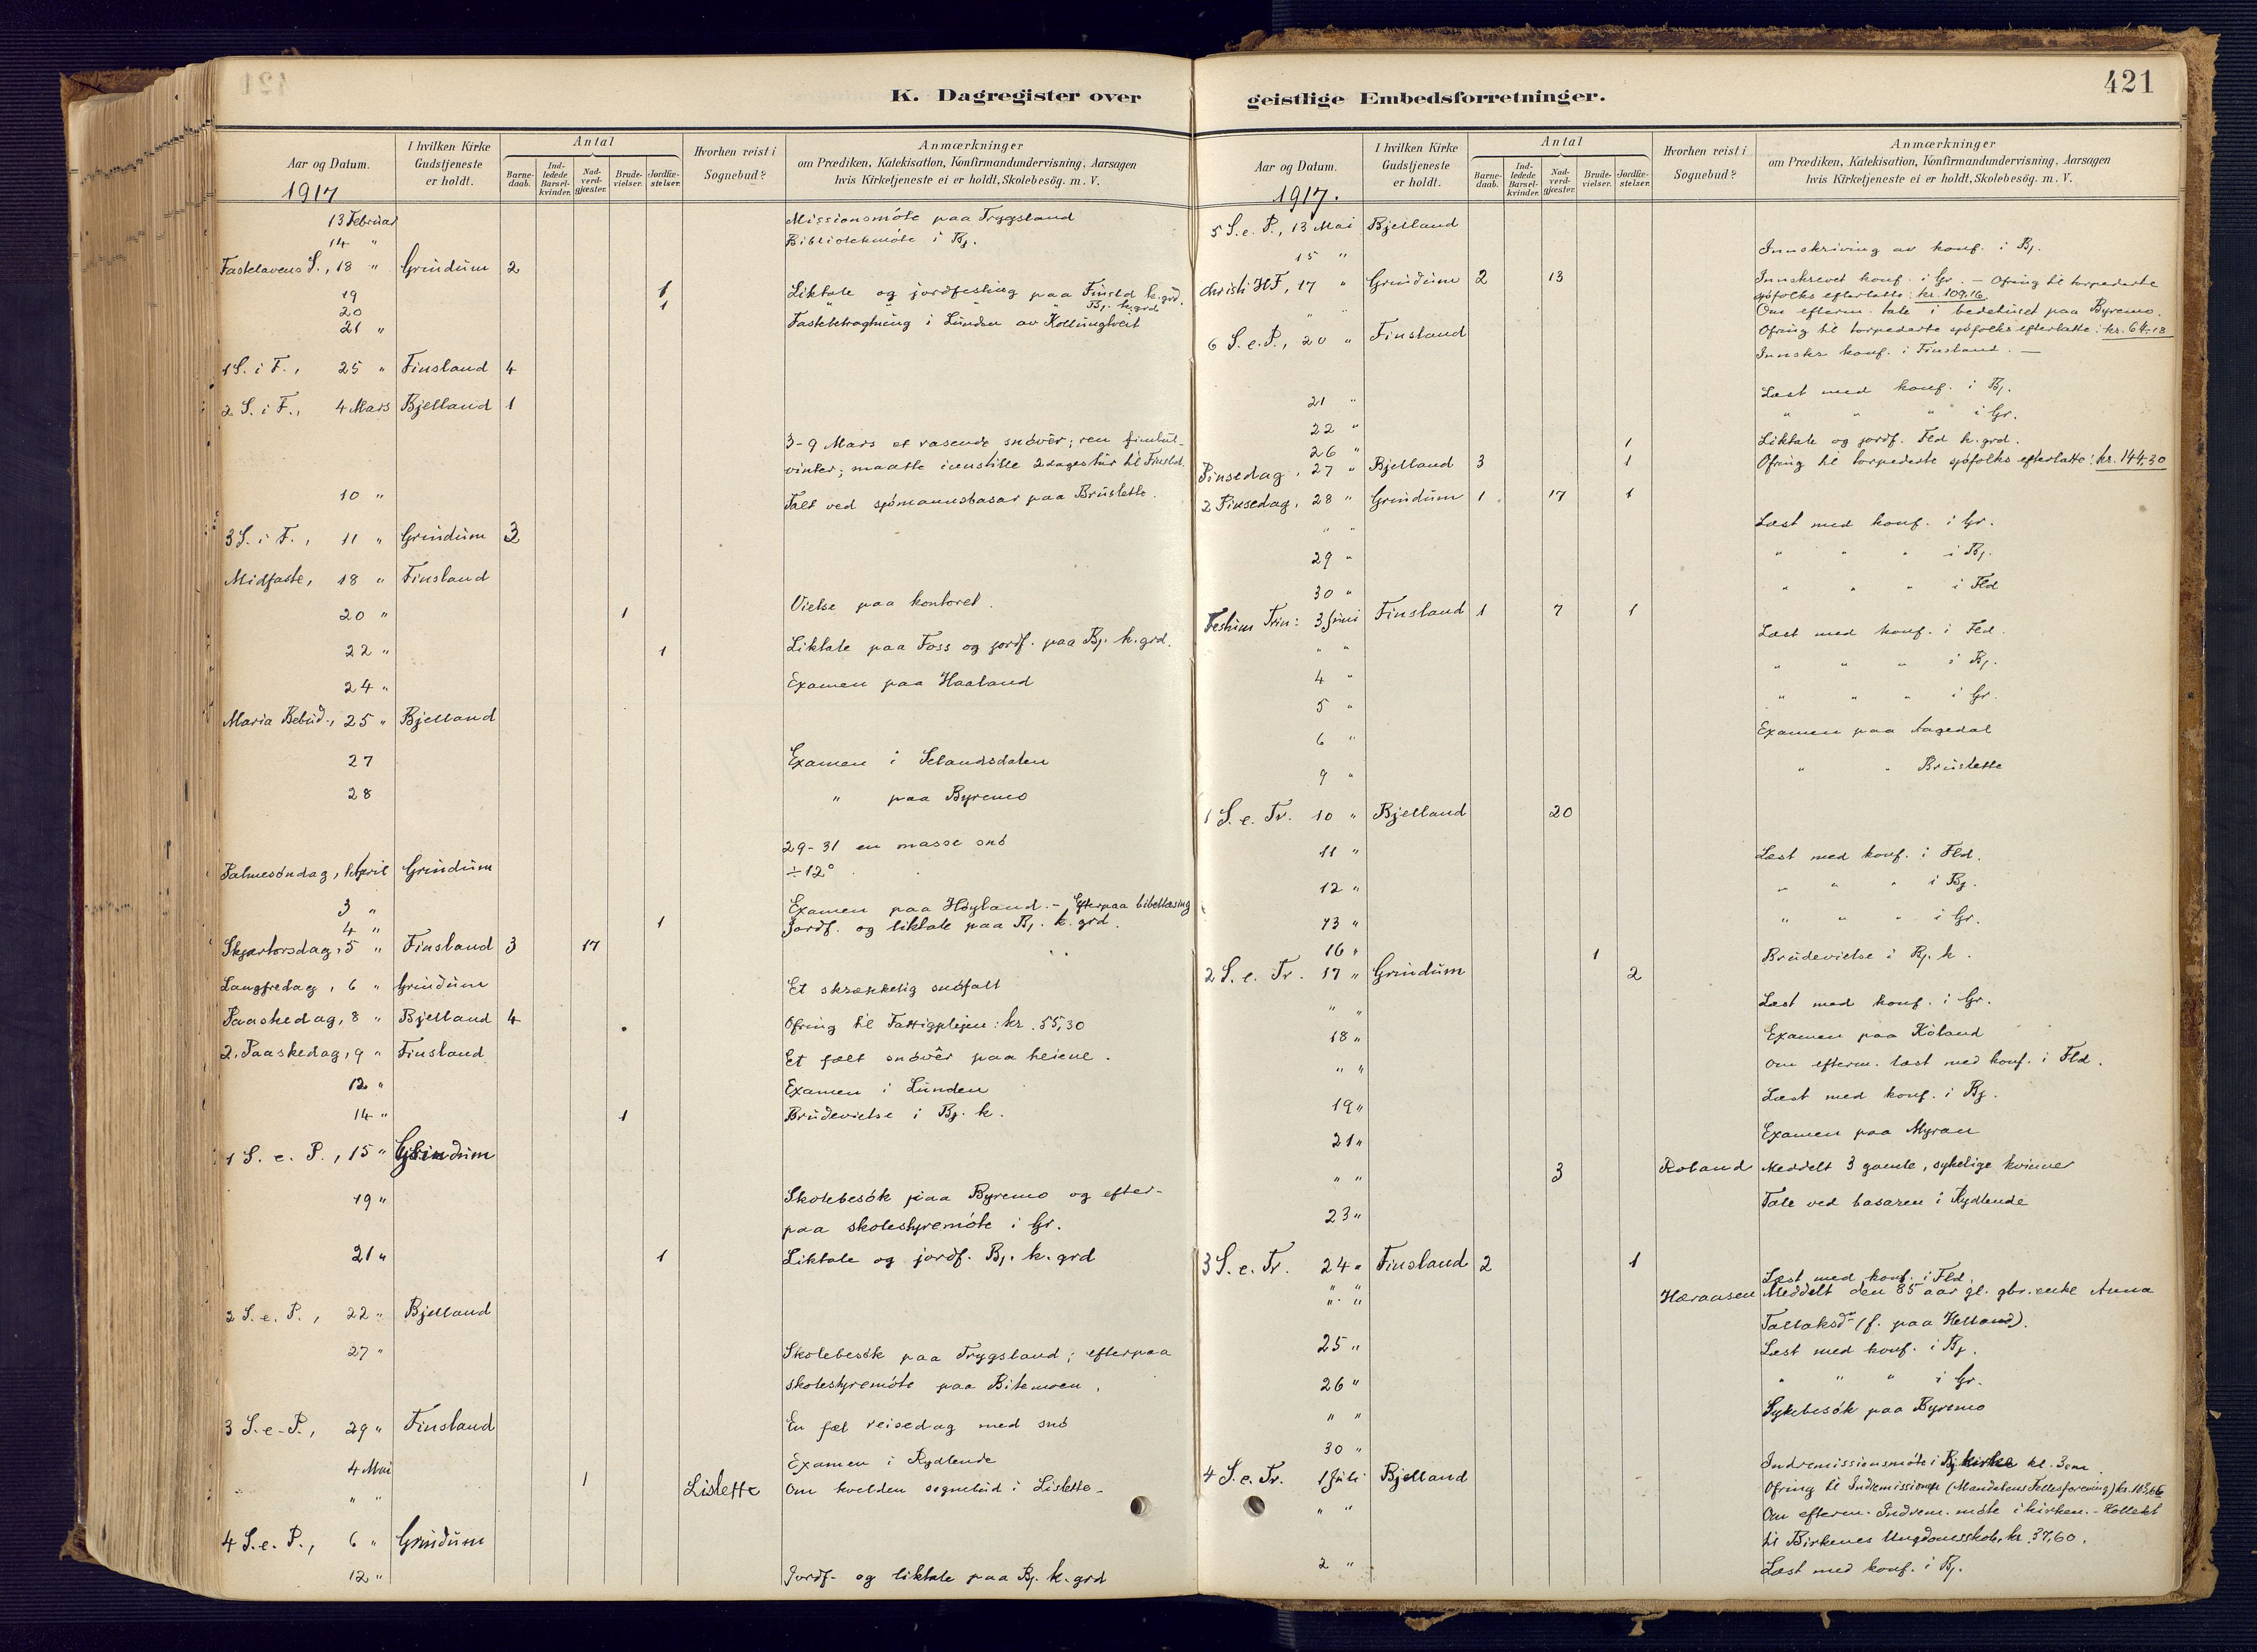 421
K. Dagregister over geistlige Embedsforretninger.
Aar og Datum.
I hvilken Kirke Gudstjeneste er holdt.
Antal
Barne-daab.
Ind-ledede Barsel-kvinder.
Nad-verd-gjæster.
Brude-vielser.
Jordfæ-stelser.
Hvorhen reist i Sognebud?
Anmærkninger
om Prædiken, Katekisation, Konfirmandundervisning, Aarsagen
hvis Kirketjeneste ei er holdt, Skolebesög. m. V.
1917
13 Februar Missionsmöte paa Trygsland
14 " Bibliotekmöte i Bj.
Fastelavens S., 18 " Grindum 2
19 1 Liktale og jordfesting paa Finsld k.grd.
20 1 " " " " Bj. k.grd
21 " Fastebetragtning i Lunden av Kollungtveit
1 S. i F., 25 " Finsland 4
2 S. i F., 4 Mars Bjelland 1
3-9 Mars et rasende snövêr; ren fimbul-
vinter; maatte innstille 2 dages tur til Finsld.
10 " Talt ved sjömannsbasar paa Bruslette.
3 S. i F., 11 " Grindum 3
Midfaste, 18 " Finsland
20 " 1 Vielse paa kontoret.
22 " 1 Liktale paa Foss og jordf. paa Bj. k.grd.
24 " Examen paa Haaland
Maria Bebud., 25 " Bjelland
27 Examen i Selandsdalen
28 " paa Byremo
29-31 en masse snö
Palmesöndag, 1 April Grindum ÷12°
3 " Examen paa Höyland. - Efterpaa bibellæsing
4 " 1 Jordf. og liktale paa Bj. k. grd.
Skjærtorsdag, 5 " Finsland 3 17
Langfredag, 6 " Grindum Et skrækkelig snöfall
Paaskedag, 8 " Bjelland 4 Ofring til Fattigplejen: kr. 55,30
2. Paaskedag, 9 " Finsland Et fælt snövêr paa heiene.
12 " Examen i Lunden
14 " 1 Brudevielse i Bj. k.
1 S. e. P., 15 " Grindum
19 " Skolebesök paa Byremo og efter-
paa skolestyremöte i Gr.
21 " 1 Liktale og jordf. Bj. k. grd
2 S. e. P., 22 " Bjelland
27 " Skolebesök paa Trygsland; efterpaa
skolestyremöte paa Bitemoen.
3 S. e. P., 29 " Finsland En fæl reisedag med snö
4 Mai Examen i Rydlende
" " 1 Lislette Om kvelden sognebud i Lislette.
4 S. e. P., 6 " Grindum
12 " Jordf. og liktale paa Bj. k. grd
Aar og Datum.
I hvilken Kirke Gudstjeneste er holdt.
Antal
Barne-daab.
Ind-ledede Barsel-kvinder.
Nad-verd-gjæster.
Brude-vielser.
Jordfæ-stelser.
Hvorhen reist i Sognebud?
Anmærkninger
om Prædiken, Katekisation, Konfirmandundervisning, Aarsagen
hvis Kirketjeneste ei er holdt, Skolebesög. m. V.
1917.
5 S. e. P., 13 Mai Bjelland
15 " Innskriving av konf. i Bj.
Christi HF, 17 " Grindum 2 13 Innskrevet konf. i Gr. - Ofring til torpederte
sjöfolks efterlatte: kr. 109,16
" " Om efterm. tale i bedehuset paa Byremo.
6 S. e. P., 20 " Finsland Ofring til torpederte sjöfolks efterlatte: kr. 64,18
Innskr. konf. i Finsland. -
21 " Læst med konf. i Bj.
22 " " " " i Gr.
26 " 1 Liktale og jordf. Fld k. grd.
Pinsedag, 27 " Bjelland 3 1 Ofring til torpederte sjöfolks efterlatte: kr. 144,30
2 Pinsedag, 28 " Grindum 1 17 1
" " Læst med konf. i Gr.
29 " " " " i Bj.
30 " " " " i Fld
Festum Trin: 3 Juni Finsland 1 7 1
" " Læst med konf. i Fld.
4 " " " " i Bj.
5 " " " " i Gr.
6 " Examen paa Aagedal
9 " " " Bruslette
1 S. e. Tr. 10 " Bjelland 20
11 " Læst med konf. i Fld.
12 " " " " i Bj.
13 " " " " i Gr.
16 " 1 Brudevielse i Bj. k.
2 S. e. Tr. 17 " Grindum 2
" " Læst med konf. i Gr.
18 " Examen paa Köland
" " Om efterm. læst med konf. i Fld.
19 " Læst med konf. i Bj.
21 " Examen paa Myran
" " 3 Roland Meddelt 3 gamle, sykelige kvinner
23 " Tale ved basaren i Rydlende
3 S. e. Tr. 24 " Finsland 2 1
" " Læst med konf. i Fld.
" " Hæraasen Meddelt den 85 aar gl. gbr. enke Anna
Tallaksdr (f. paa Helland).
25 " Læst med konf. i Bj.
26 " " " " i Gr.
" " Sykebesök paa Byremo
30 "
4 S. e. Tr. 1 Juli Bjelland Indremissionsmöte i Bj. kirke kl. 3 em.
Ofring til Indremissionen (Mandalens Fellesforening) kr. 105,66
" " Om efterm. Indrem. möte i kirken. - Kollekt
til Birkenes Ungdomsskole, kr. 37,60.
2 " Læst med konf. i Bj.